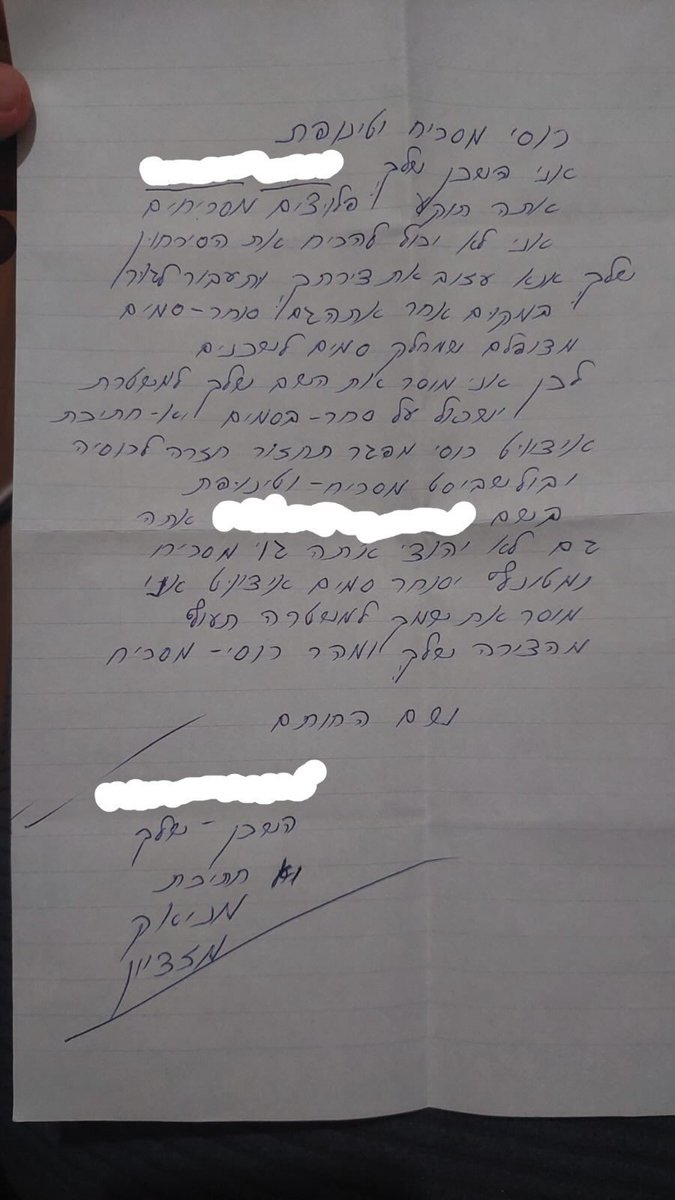 רוסי מסריח וטינופת
אני השכן שלך
אתה תוקע פלוצים מסריחים
אני לא יכול להכיח את הסירחון
שלך אנא עזוב את דירתך ותעבור לגור
במקום אחר אתה גם סוחר-סמים
מצופלם שמחלק סמים לשכנים
לכן אני מוסר את השם שלך למשטרת
ישראל על סחר-בסמים יא-חתיכת
אידיוט רוסי מפגר תחזור חזרה לרוסיה
ובולשביסט מסריח-וטינופת
בשם אתה
גם לא יהודי אתה גוי מסריח
ומטונף סוחר סמים אידיוט אני
מוסר את שמך למשטרה תעוף
מהדירה שלך ומהר רוסי-מסריח
שם החותם
השכן-שלך
יא חתיכת
מניאק
מזדיין